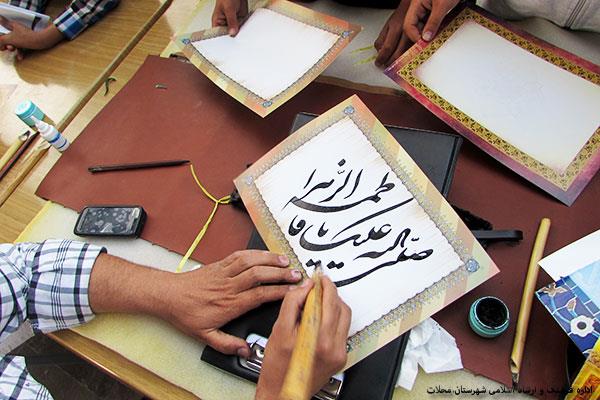 صلّی الله علیک یا فاطمه الزّهرا
اداره فرهنگ و ارشاد اسلامی شهرستان محلات